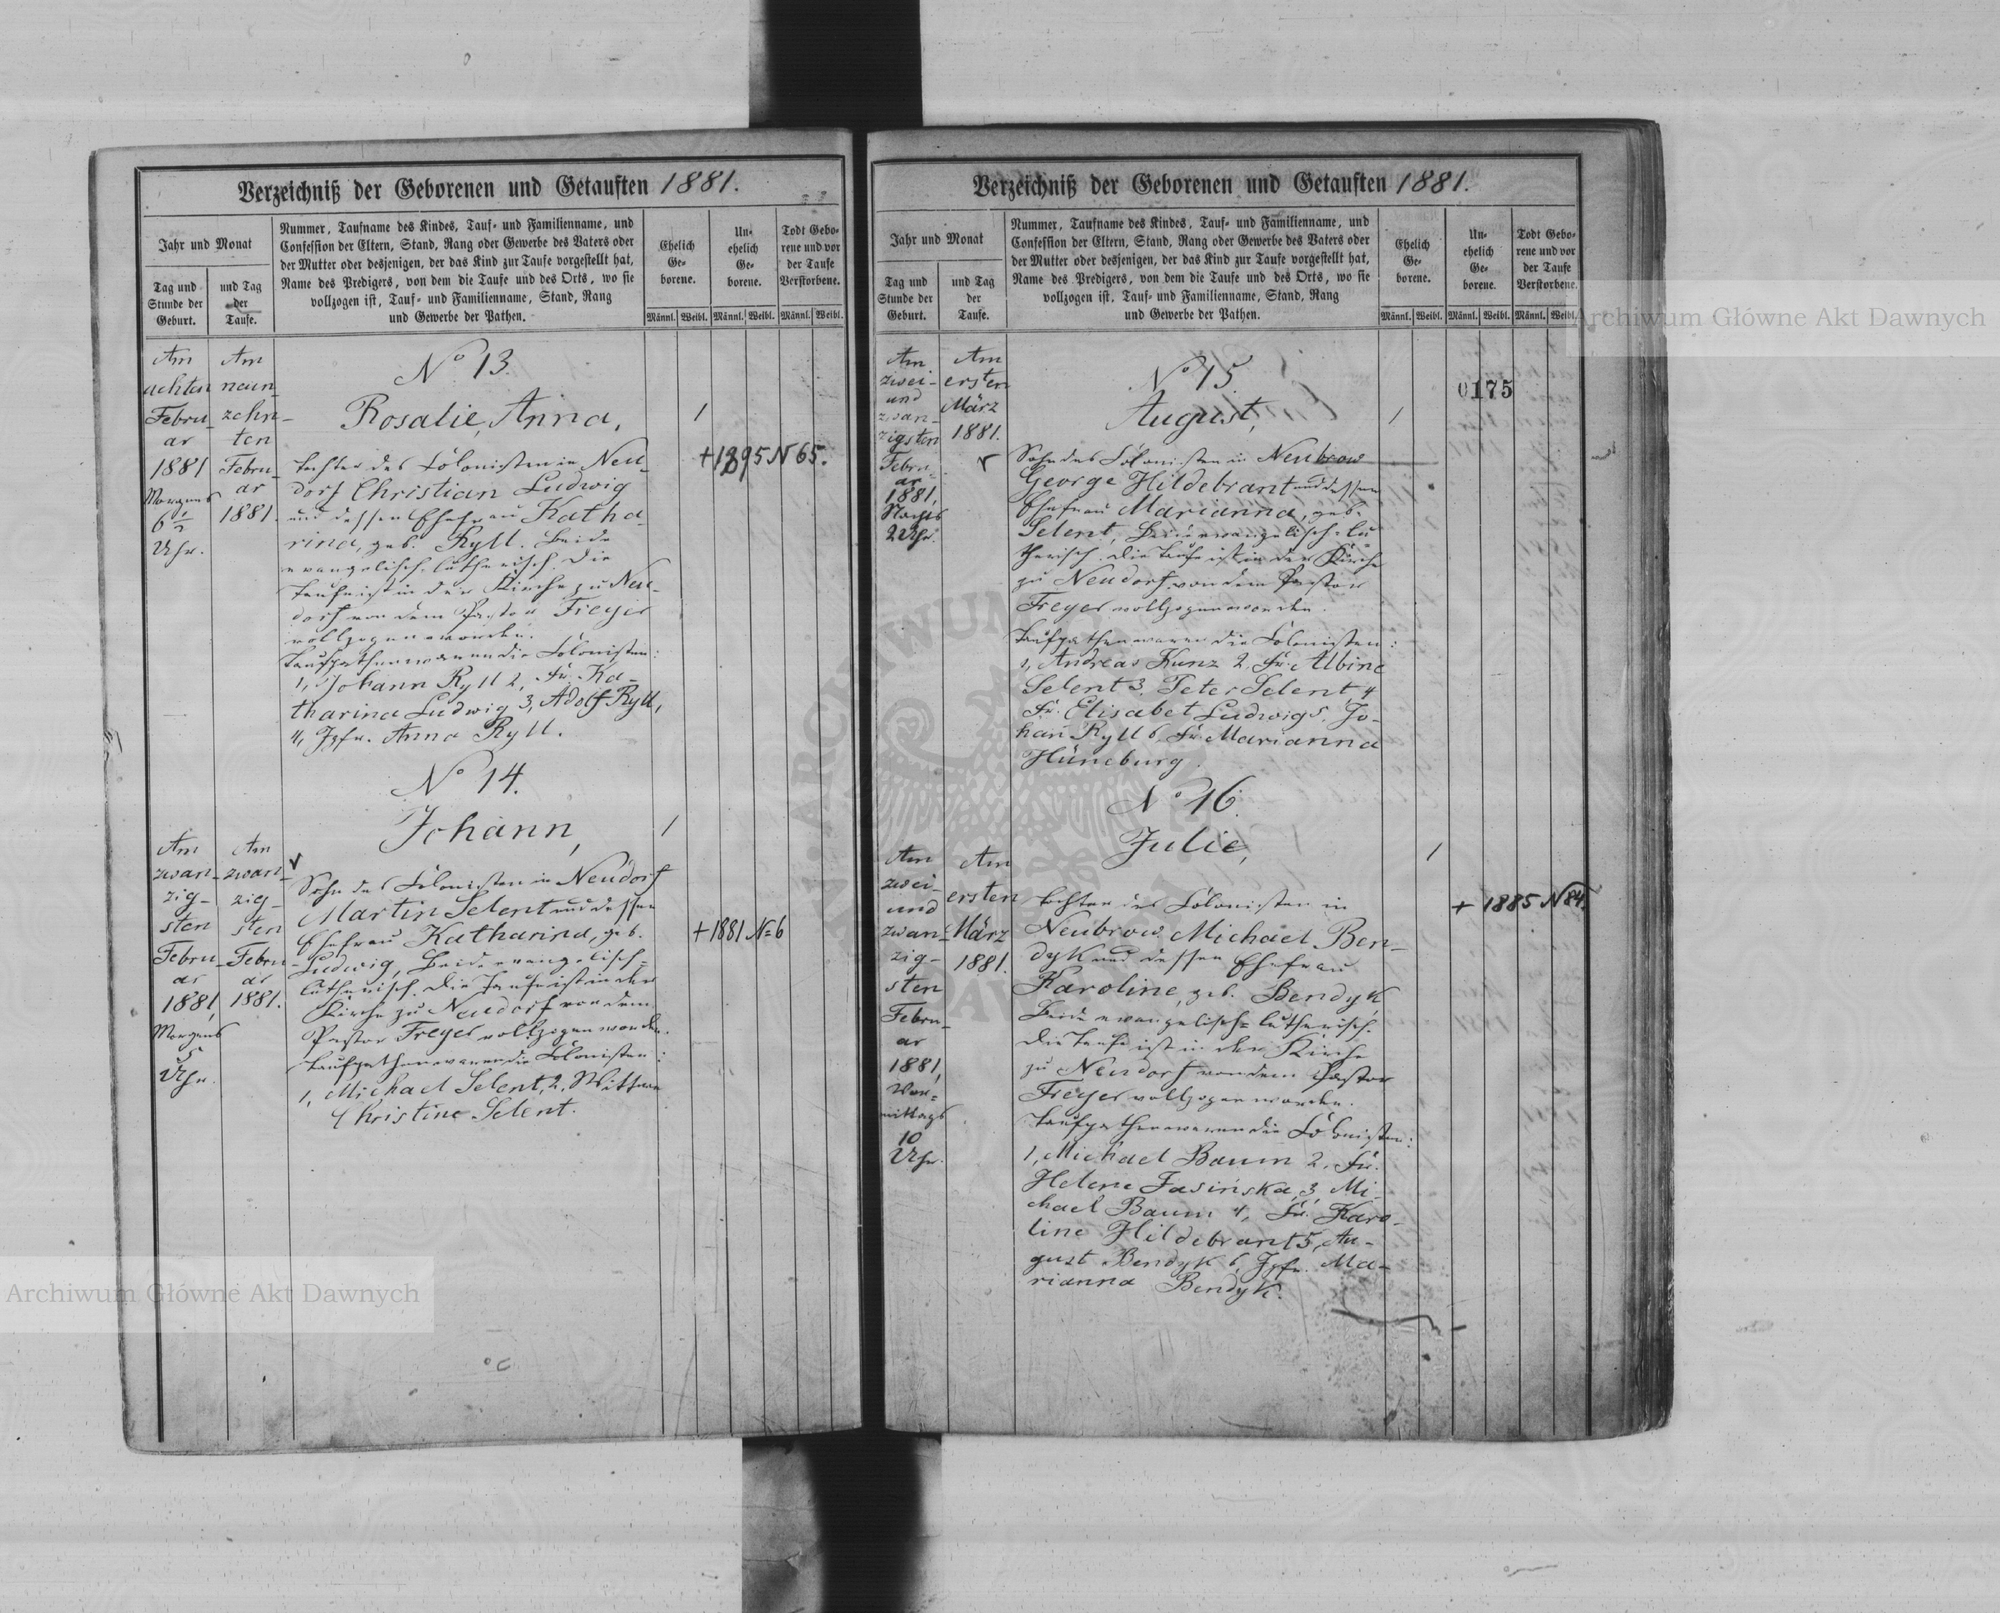 Verzeichniß der Geborenen und Getauften 1881.
Jahr und Monat
Tag und
Stunde der
Geburt.
und Tag
der
Taufe.
Nummer, Taufname des Kindes, Tauf- und Familienname, und
Confession der Eltern, Stand, Rang oder Gewerbe des Vaters oder
der Mutter oder desjenigen, der das Kind zur Taufe vorgestellt hat,
Name des Predigers, von dem die Taufe und des Orts, wo sie
vollzogen ist, Tauf- und Familienname, Stand, Rang
und Gewerbe der Pathen.
Ehelich
Ge-
borene.
Un-
ehelich
Ge-
borene.
Todt Gebo-
rene und vor
der Taufe
Verstorbene.
Männl. Weibl. Männl. Weibl. Männl. Weibl.
Am
achten
Febru-
ar
1881
Morgens
6 1/2
Uhr.
Am
neun-
zehn-
ten
Febru-
ar
1881.
No 13.
Rosalie, Anna,
Tochter des Colonisten in Neu-
dorf Christian Ludwig
und dessen Ehefrau Katha-
rina, geb. Ryll. Beide
evangelisch-lutherisch. Die
Taufe ist in der Kirche zu Neu-
dorf von dem Pastor Freyer
vollzogen worden.
Taufpathen waren die Colonisten:
1, Johann Ryll 2, Fr. Ka-
tharina Ludwig 3, Adolf Ryll,
4, Jgfr. Anna Ryll.
1
+1895 N 65.
Am
zwan-
zig-
sten
Febru-
ar
1881,
Morgens
5
Uhr.
Am
zwan-
zig-
sten
Febru-
ar
1881.
No 14.
Johann,
Sohn des Colonisten in Neudorf
Martin Selent und dessen
Ehefrau Katharina, geb.
Ludwig, Beide evangelisch-
lutherisch. Die Taufe ist in der
Kirche zu Neudorf von dem
Pastor Freyer vollzogen worden.
Taufpathen waren die Colonisten:
1, Michael Selent, 2, Wittwe
Christine Selent.
1
+1881 N=6
Verzeichniß der Geborenen und Getauften 1881.
Jahr und Monat
Tag und
Stunde der
Geburt.
und Tag
der
Taufe.
Nummer, Taufname des Kindes, Tauf- und Familienname, und
Confession der Eltern, Stand, Rang oder Gewerbe des Vaters oder
der Mutter oder desjenigen, der das Kind zur Taufe vorgestellt hat,
Name des Predigers, von dem die Taufe und des Orts, wo sie
vollzogen ist, Tauf- und Familienname, Stand, Rang
und Gewerbe der Pathen.
Ehelich
Ge-
borene.
Un-
ehelich
Ge-
borene.
Todt Gebo-
rene und vor
der Taufe
Verstorbene.
Männl. Weibl. Männl. Weibl. Männl. Weibl.
0175
Am
zwei-
und
zwan-
zigsten
Febru-
ar
1881,
Nachts
2 Uhr.
Am
ersten
März
1881.
No 15.
August,
Sohn des Colonisten in Neubrow
George Hildebrant und dessen
Ehefrau Marianna, geb.
Selent, Beide evangelisch-lu-
therisch. Die Taufe ist in der Kirche
zu Neudorf von dem Pastor
Freyer vollzogen worden.
Taufpathen waren die Colonisten:
1, Andreas Kunz 2, Fr. Albine
Selent 3, Peter Selent 4
Fr. Elisabet Ludwig 5, Jo-
han̄ Ryll 6, Fr. Marianna
Hüneburg.
1
Am
zwei-
und
zwan-
zig-
sten
Febru-
ar
1881,
Vor-
mittags
10
Uhr.
Am
ersten
März
1881.
No 16.
Julie,
Tochter des Colonisten in
Neubrow Michael Ben-
dyk und dessen Ehefrau
Karoline, geb. Bendyk,
Beide evangelisch-lutherisch.
Die Taufe ist in der Kirche
zu Neudorf von dem Pastor
Freyer vollzogen worden.
Taufpathen waren die Colonisten:
1, Michael Baum 2, Fr.
Helene Jasińska, 3, Mi-
chael Baum 4, Fr. Karo-
line Hildebrant 5, Au-
gust Bendyk 6, Jgfr. Ma-
rianna Bendyk.
1
+ 1885 N 84.
Archiwum Główne Akt Dawnych
Archiwum Główne Akt Dawnych